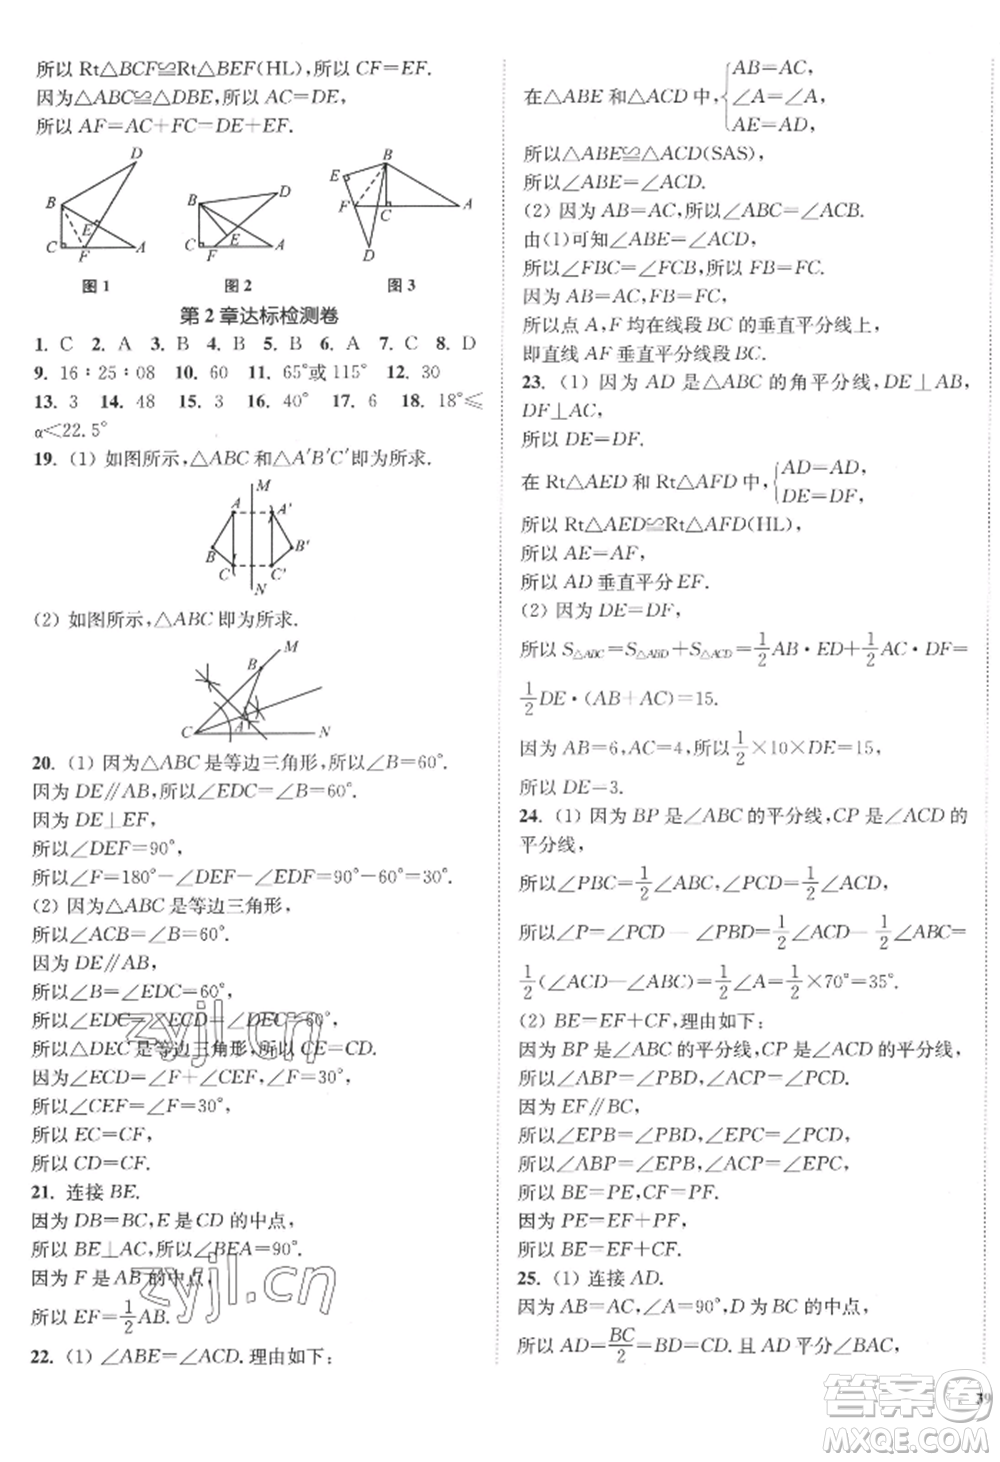 所以 Rt△BCF≌Rt△BEF(HL),所以 CF=EF.
因为△ABC≌△DBE,所以 AC=DE,
所以 AF=AC+FC=DE+EF.
D
B
E
C
F
A
B
D
E
C
F
A
B
E
F
C
A
D
图 1
图 2
图 3
第 2 章达标检测卷
1. C 2. A 3. B 4. B 5. B 6. A 7. C 8. D
9. 16:25:08 10. 60 11. 65°或 115° 12. 30
13. 3 14. 48 15. 3 16. 40° 17. 6 18. 18°≤
α<22.5°
19. (1) 如图所示,△ABC 和△A′B′C′即为所求.
M
A
A′
B
B′
C
C′
N
(2) 如图所示,△ABC 即为所求.
M
B
A
C
N
20. (1) 因为△ABC 是等边三角形,所以∠B=60°.
因为 DE∥AB,所以∠EDC=∠B=60°.
因为 DE⊥EF,
所以∠DEF=90°,
所以∠F=180°−∠DEF−∠EDF=90°−60°=30°.
(2) 因为△ABC 是等边三角形,
所以∠ACB=∠B=60°.
因为 DE∥AB,
所以∠B=∠EDC=60°,
所以∠EDC=∠ECD=∠DEC=60°,
所以△DEC 是等边三角形,所以 CE=CD.
因为∠ECD=∠F+∠CEF,∠F=30°,
所以∠CEF=∠F=30°,
所以 EC=CF,
所以 CD=CF.
21. 连接 BE.
因为 DB=BC,E 是 CD 的中点,
所以 BE⊥AC,所以∠BEA=90°.
因为 F 是 AB 的中点,
所以 EF=1/2 AB.
22. (1) ∠ABE=∠ACD. 理由如下:
在△ABE 和△ACD 中,{AB=AC,
∠A=∠A,
AE=AD,
所以△ABE≌△ACD(SAS),
所以∠ABE=∠ACD.
(2) 因为 AB=AC,所以∠ABC=∠ACB.
由(1)可知∠ABE=∠ACD,
所以∠FBC=∠FCB,所以 FB=FC.
因为 AB=AC,FB=FC,
所以点 A,F 均在线段 BC 的垂直平分线上,
即直线 AF 垂直平分线段 BC.
23. (1) 因为 AD 是△ABC 的角平分线,DE⊥AB,
DF⊥AC,
所以 DE=DF.
在 Rt△AED 和 Rt△AFD 中,{AD=AD,
DE=DF,
所以 Rt△AED≌Rt△AFD(HL),
所以 AE=AF,
所以 AD 垂直平分 EF.
(2) 因为 DE=DF,
所以 S△ABC=S△ABD+S△ACD=1/2 AB·ED+1/2 AC·DF=
1/2 DE·(AB+AC)=15.
因为 AB=6,AC=4,所以 1/2×10×DE=15,
所以 DE=3.
24. (1) 因为 BP 是∠ABC 的平分线,CP 是∠ACD 的
平分线,
所以∠PBC=1/2∠ABC,∠PCD=1/2∠ACD,
所以∠P=∠PCD−∠PBD=1/2∠ACD−1/2∠ABC=
1/2(∠ACD−∠ABC)=1/2∠A=1/2×70°=35°.
(2) BE=EF+CF,理由如下:
因为 BP 是∠ABC 的平分线,CP 是∠ACD 的平分线,
所以∠ABP=∠PBD,∠ACP=∠PCD.
因为 EF∥BC,
所以∠EPB=∠PBD,∠EPC=∠PCD,
所以∠ABP=∠EPB,∠ACP=∠EPC,
所以 BE=PE,CF=PF.
因为 PE=EF+PF,
所以 BE=EF+CF.
25. (1) 连接 AD.
因为 AB=AC,∠A=90°,D 为 BC 的中点,
所以 AD=BC/2=BD=CD,且 AD 平分∠BAC,
39
zyjl.cn
zyjl.cn
答案卷
MXQE.COM